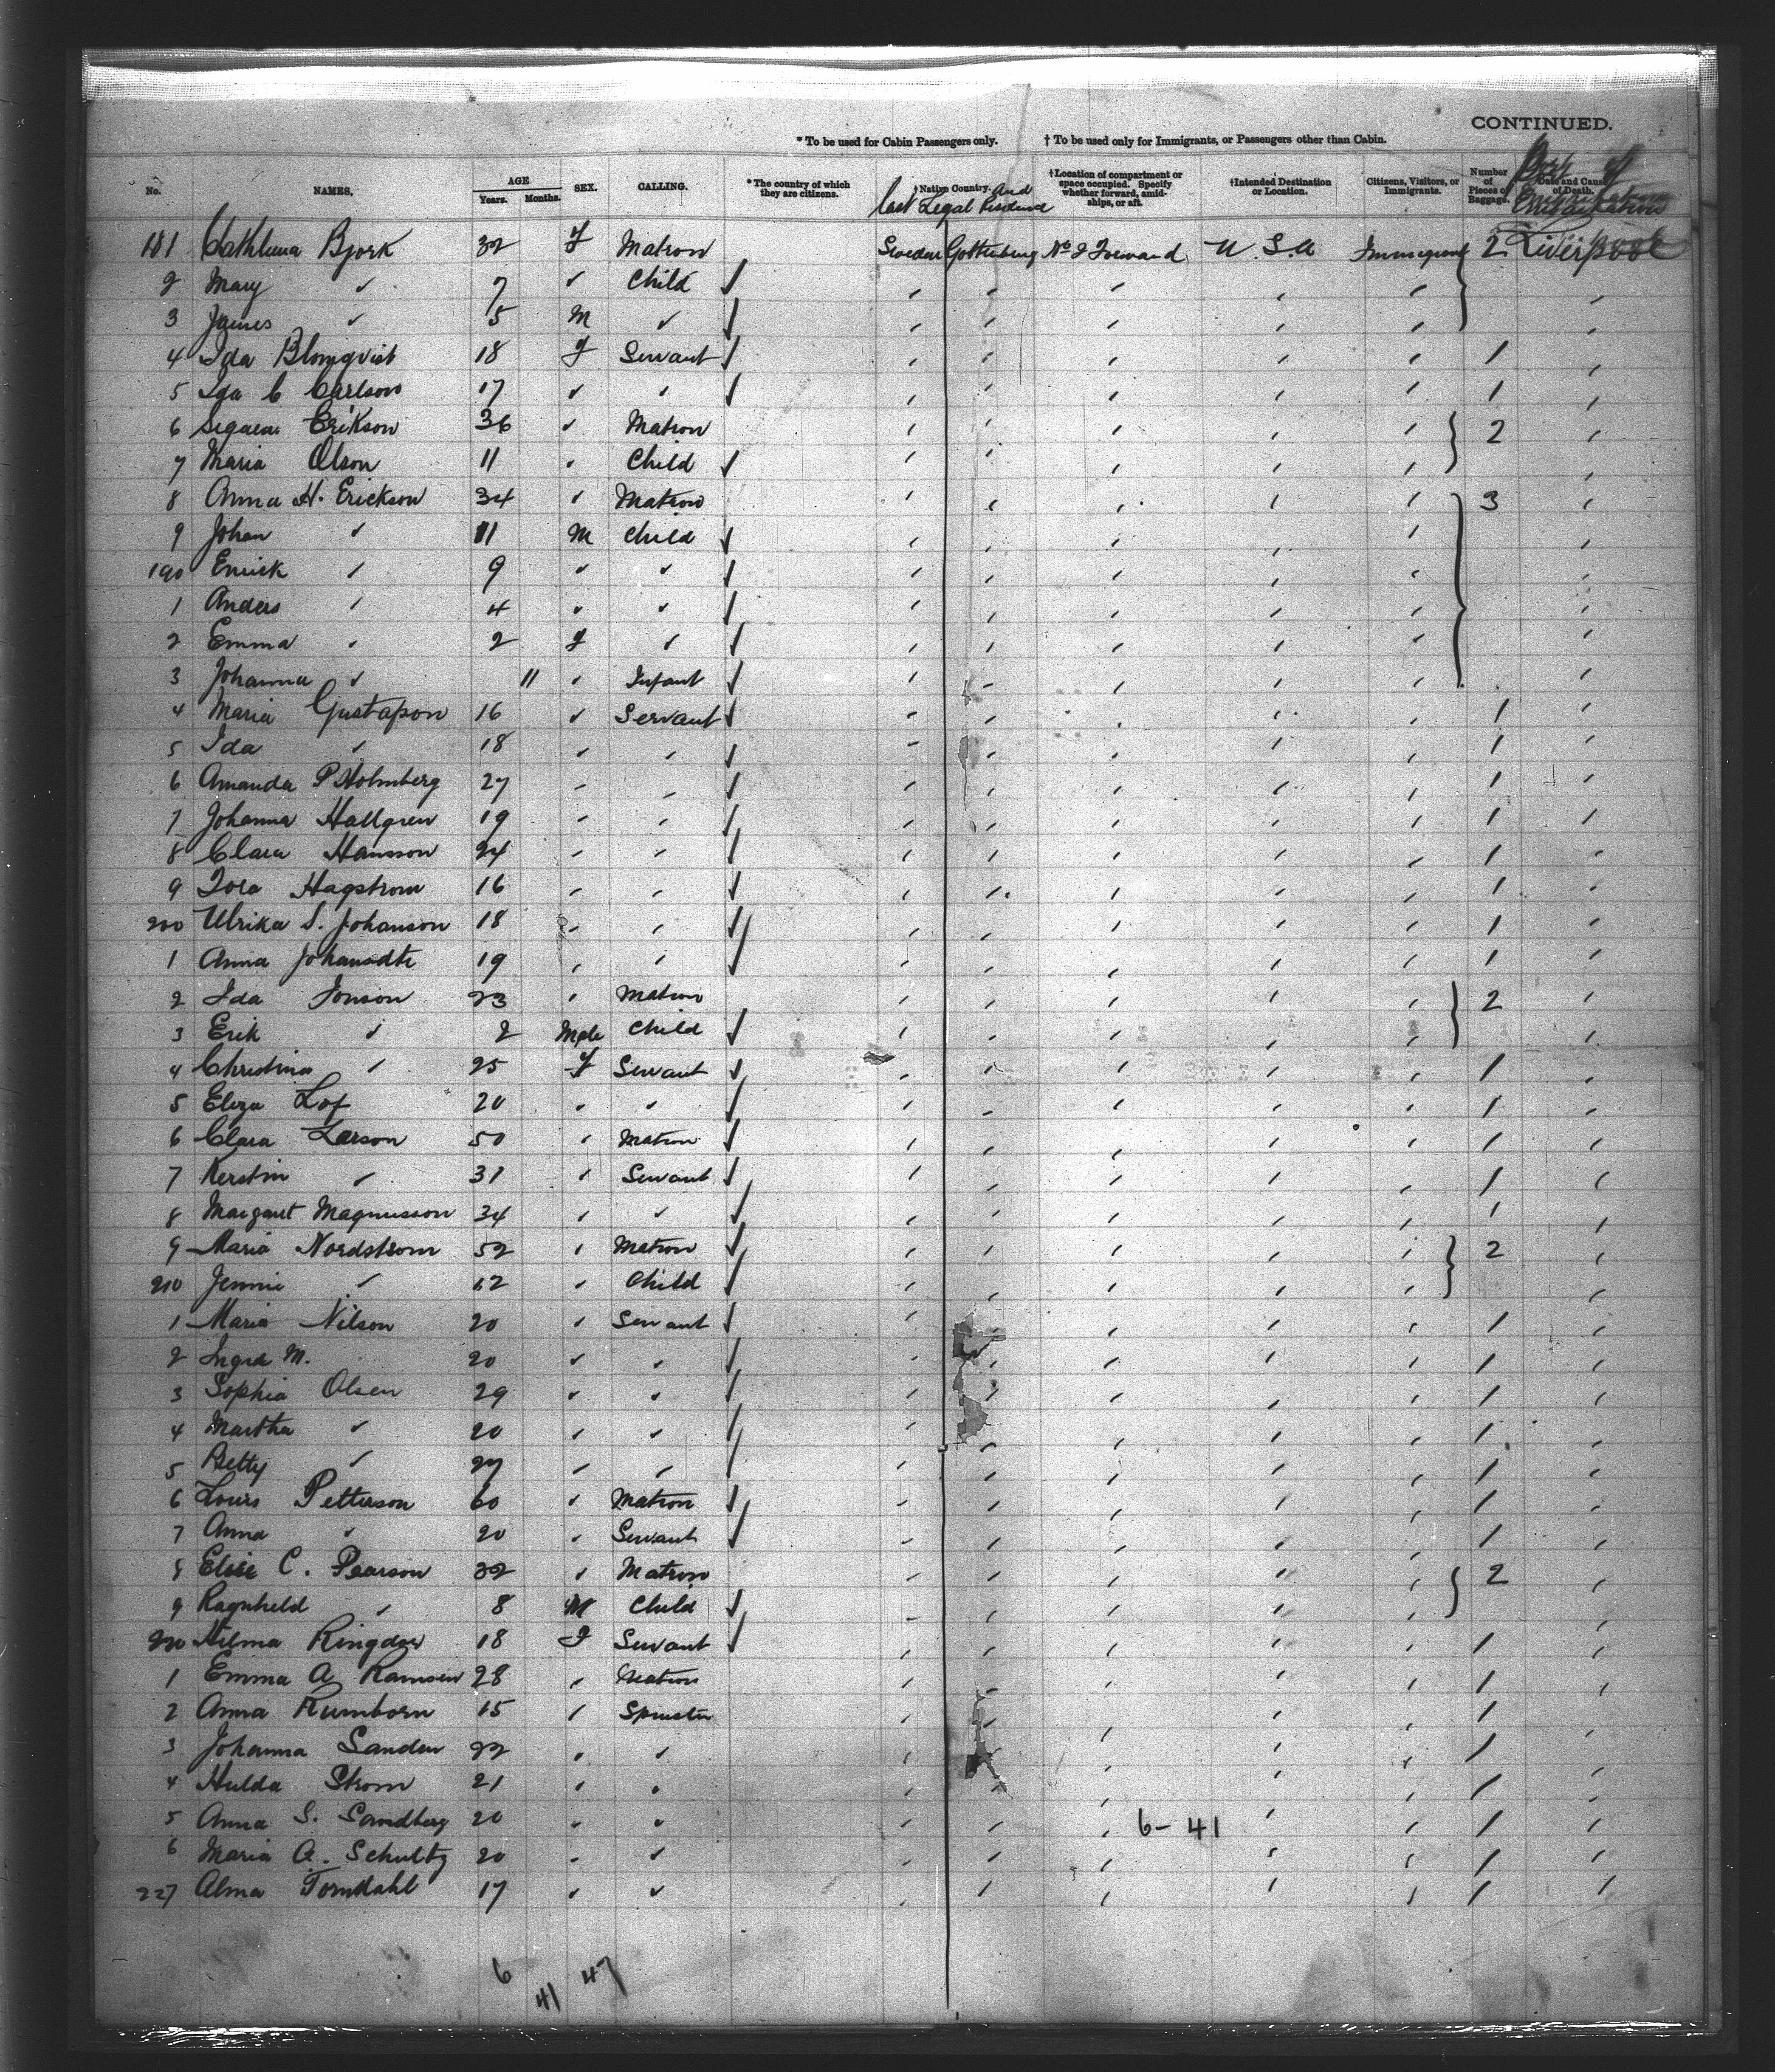 CONTINUED.
* To be used for Cabin Passengers only. † To be used only for Immigrants, or Passengers other than Cabin.
No. NAMES. AGE Years. Months. SEX. CALLING. * The country of which they are citizens. † Native Country. And last Legal Residence † Location of compartment or space occupied. Specify whether forward, amidships, or aft. † Intended Destination or Location. Citizens, Visitors, or Immigrants. Number of Pieces of Baggage. Date and Cause of Death. Port of Embarkation
181 Bjork 32 F Matron Sweden Gottenburg No 2 Forward U.S.A Immigrant 2 Liverpool
2 Mary " 7 " Child
3 James " 5 M "
4 Ida Blomqvist 18 F Servant 1
5 Ida C Carlson 17 " " 1
6 Erikson 36 " Matron 2
7 Maria Olson 11 " Child
8 Anna H. Erickson 34 " Matron 3
9 Johan " 11 M Child
190 " 9 " "
1 Anders " 4 " "
2 Emma " 2 F "
3 Johanna " 11 " Infant
4 Maria Gustafson 16 " Servant 1
5 Ida " 18 " " 1
6 Amanda P Holmberg 27 " " 1
7 Johanna Hallgren 19 " " 1
8 Clara Hansson 24 " " 1
9 Hagstrom 16 " " 1
200 Ulrika S. Johanson 18 " " 1
1 Anna Johansdtr 19 " " 1
2 Ida Jonson 23 " Matron 2
3 Erik " 2 Male Child
4 Christina " 25 F Servant 1
5 Eliza Lof 20 " " 1
6 Clara Larson 50 " Matron 1
7 Kerstin " 31 " Servant 1
8 Margaret Magnusson 34 " " 1
9 Maria Nordstrom 52 " Matron 2
210 Jennie " 12 " Child
1 Maria Nilson 20 " Servant 1
2 Ingrd M. 20 " " 1
3 Sophia Olsen 29 " " 1
4 Martha " 20 " " 1
5 Betty " 27 " " 1
6 Louis Petterson 60 " Matron 1
7 Anna " 20 " Servant 1
8 Elise C. Pearson 32 " Matron 2
9 Ragnheld " 8 M Child
220 18 F Servant 1
1 Emma A 28 " Matron 1
2 Anna Rumborn 15 " Spinster 1
3 Johanna Sanden 22 " " 1
4 Hulda Strom 21 " " 1
5 Anna S. Sandberg 20 " " 6-41 1
6 Maria A. Schultz 20 " " 1
227 Alma Torndahl 17 " " 1
6 41 47